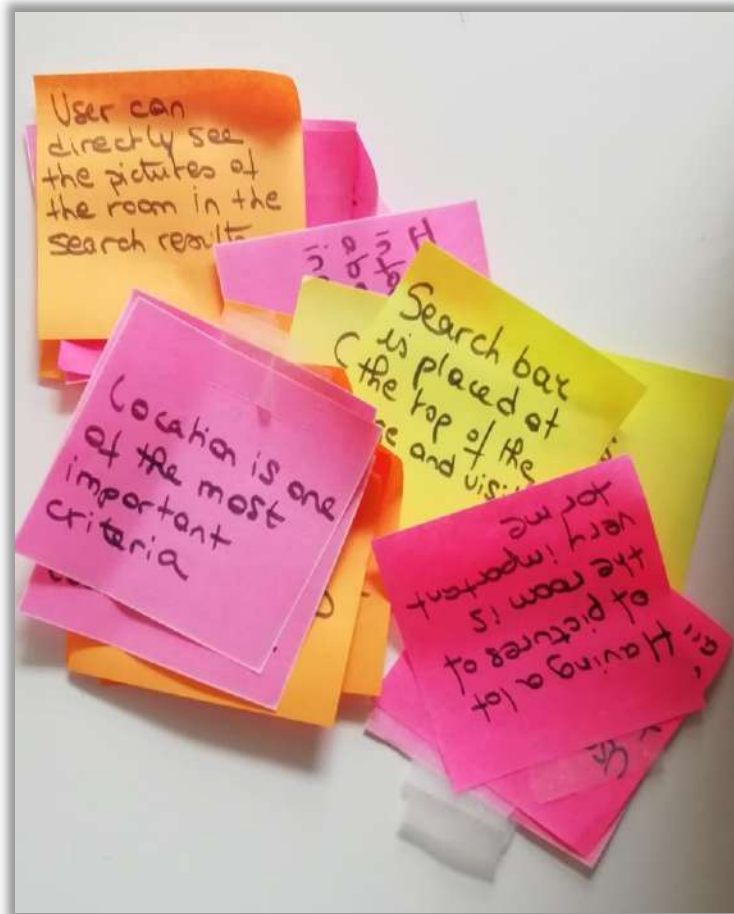 User can
directly see
the pictures of
the room in the
search results
Search bar
is placed at
the top of the
and
Location is one
of the most
important
criteria
Having a lot
of pictures of
the room is
very important
for me